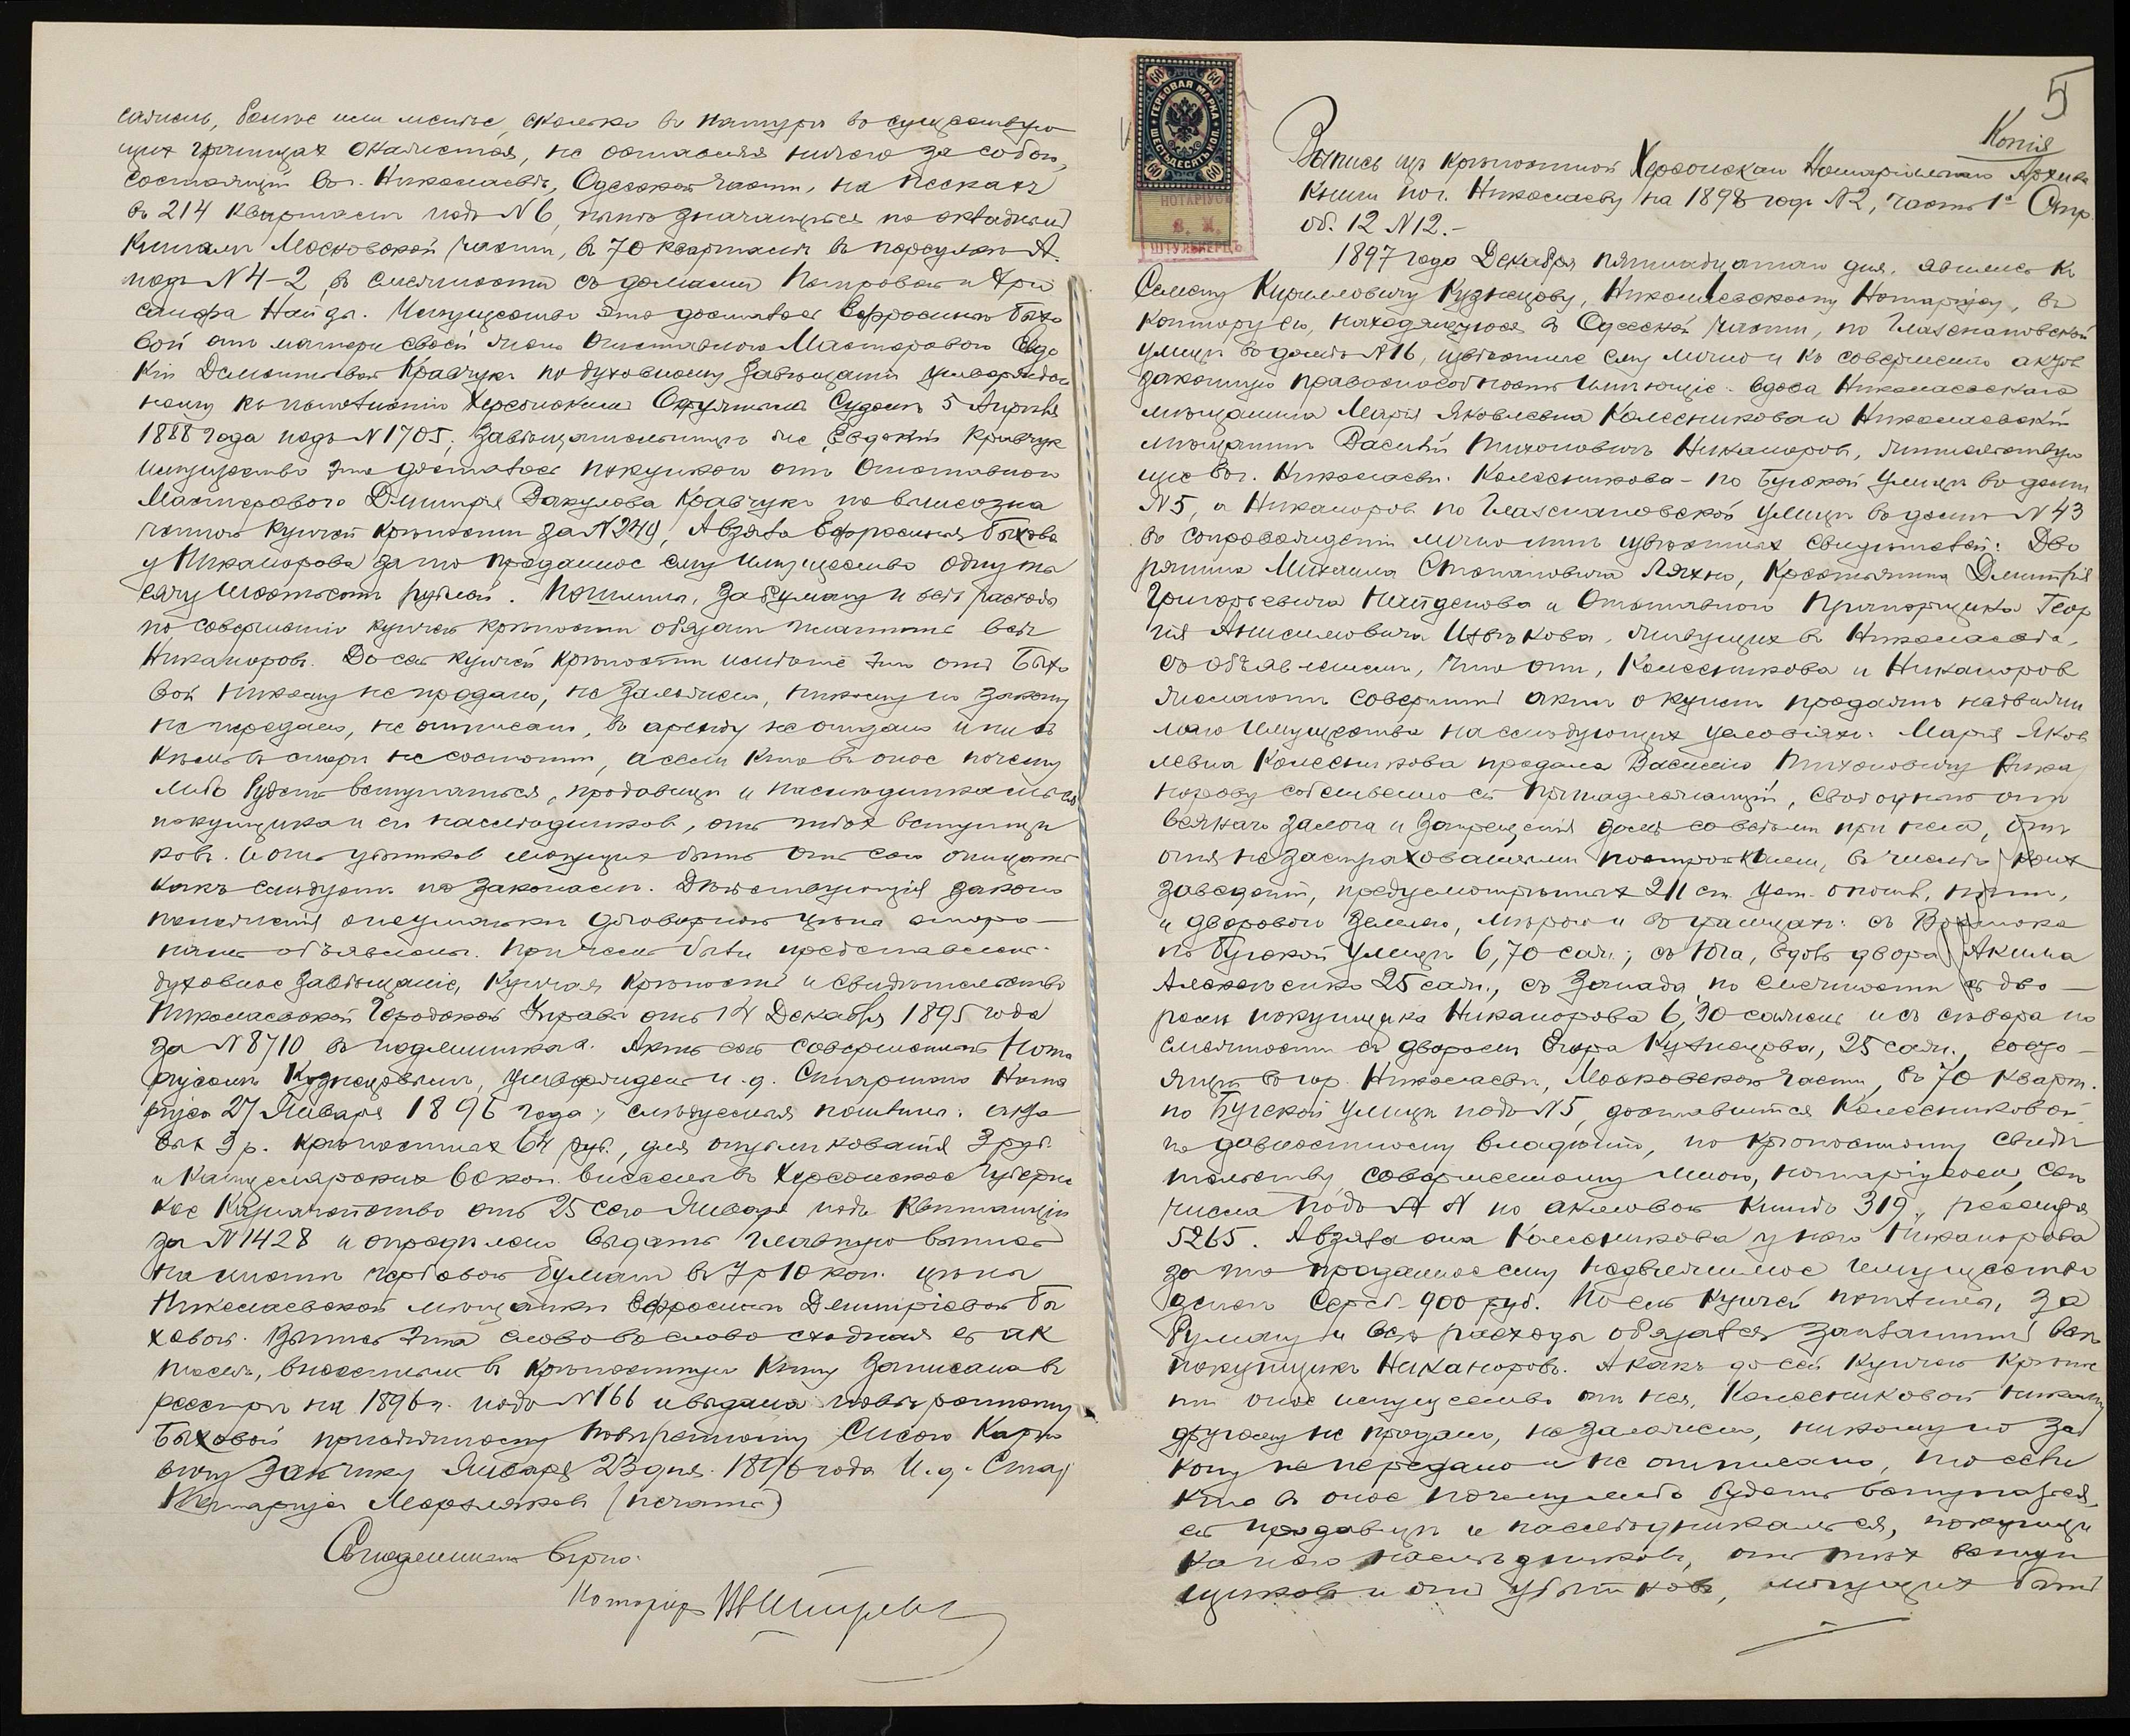 сажень, более или менее, сколько въ натуре въ существую
щихъ границахъ окажется, не оставляя ничего за собою,
состоящiй въ г. Николаеве, Одесской части, на Пескахъ
въ 214 квартале подъ №6, ныне значащiйся по окладнымъ
книгамъ Московской части, въ 70 квартале въ переулке А.
подъ №4-2, въ смежности съ домами Петровой и
Найды. Имущество это досталось Ефросинье Быхо
вой отъ матери своей жены Отставного Мастерового Евдо
кiи Дементьевой Кравчукъ по духовному завещанiю утвержден
ному къ исполненiю Херсонскимъ Окружнымъ Судомъ 5 Апреля
1888 года подъ №1705; завещательнице же Евдокiи Кравчукъ
имущество это досталось покупкою отъ Отставного
Мастерового Дмитрiя Вакулова Кравчука по вышеозна
ченной купчей крепости за №249, А взяла Ефросинья Быхова
у Никанорова за то проданное ему имущество одну ты
сячу шестьсотъ рублей. Пошлины, за бумагу и все расходы
по совершенiю купчей крепости обязанъ платить все
Никаноровъ. До сей купчей крепости именiе это отъ Быхо
вой никому не продано, не заложено, никому по закону
не передано, не отписано, въ аренду не отдано и ни съ
кемъ въ споре не состоитъ, а если кто въ оное почему
либо будетъ вступаться, продавице и наследникамъ ея
покупщика и его наследниковъ, отъ техъ вступщи
ковъ и отъ убытковъ могущихъ быть отъ сего очищать
какъ следуетъ по законамъ. Действующiя законо
положенiя договорной цены сторо
намъ объявлены. Причемъ были представлены
духовное завещанiе, купчая крепость и свидетельство
Николаевской Городской Управы отъ 14 Декабря 1895 года
за №8710, въ подлиннике. Актъ сей совершенный Нота
рiусомъ Кузнецовымъ, утвержденъ и. д. Старшаго Нота
рiуса 27 Января 1896 года; следуемыя пошлины: акто
выхъ 3 р. крепостныхъ 64 руб., для опубликованiя 3 руб.
и Канцелярскихъ 60 коп. внесены въ Херсонское Губернс
кое Казначейство отъ 25 сего Января подъ квитанцiю
за №1428 и определено выдать главную выпись
на листе гербовой бумаги въ 7 р 10 коп. цены
Николаевской мещанке Ефросинье Дмитрiевой Бы
ховой. Выпись эта слово въ слово сходная съ ак
томъ, внесеннымъ въ крепостную книгу записана въ
реестръ на 1896 г. подъ №166 и выдана поверенному
Быховой присяжному поверенному Сисою Карпо
вичу Заичику Января 23 дня 1896 года И. д. Стар
Нотарiуса Мерзляковъ (печать)
Съ подлиннымъ верно:
Нотарiусъ
5
Копiя
Выпись изъ крепостной Херсонскаго Нотарiальнаго Архива
книги по г. Николаеву на 1898 годъ №2, часть 1ª Стр.
об. 12 №12.-
1897 года Декабря пятнадцатаго дня, явились къ
Семену Кирилловичу Кузнецову, Николаевскому Нотарiусу, въ
контору его, находящуюся въ Одесской части, по Глазенаповской
улице въ доме №16, известные ему лично и къ совершенiю актовъ
законную правоспособность имеющiе: вдова Николаевскаго
мещанина Марiя Яковлевна Колесникова и Николаевскiй
мещанинъ Василiй Тихоновичъ Никаноровъ, жительствую
щiе въ г. Николаеве: Колесникова - по Бугской улице въ доме
№5, а Никаноровъ по Глазенаповской улице въ доме №43
въ сопровожденiи лично мне известныхъ свидетелей: Дво
рянина Михаила Степановича Ляхно, Крестьянина Дмитрiя
Григорьевича Найденова и Отставного Прапорщика Геор
гiя Анисимовича Цветкова, живущихъ въ Николаеве,
съ объявленiемъ, что они, Колесникова и Никаноровъ
желаютъ совершить актъ о купле продаже недвижи
маго имущества на следующихъ условiяхъ: Марiя Яков
левна Колесникова продала Василiю Тихоновичу Ника
норову собственно ей принадлежащiй, свободный отъ
всякаго залога и запрещенiя домъ со всемъ при немъ, отъ
огня не застрахованными постройками, въ числе коихъ
заведенiй, предусмотренныхъ 211 ст. уст. о пошл. нетъ,
и дворовою землею, мерою и въ границахъ: съ Востока
по Бугской улице 6,70 саж.; съ Юга, вдоль двора Акима
Алексеенко 25 саж., съ Запада, по смежности съ дво
ромъ покупщика Никанорова 6,30 сажень и съ севера по
смежности съ дворомъ Егора Кузнецова, 25 саж., состо
ящiй въ гор. Николаеве, Московской части, въ 70 кварт.
по Бугской улице подъ №5, доставшiйся Колесниковой
по давностному владенiю, по крепостному свиде
тельству, совершенному мною, нотарiусомъ, сего
числа подъ № по актовой книге 319, реестра
5265. А взяла она Колесникова у него Никанорова
за то проданное ему недвижимое имущество
денегъ Сереб. 900 руб. По сей купчей пошлины, за
бумагу и все расходы обязался заплатить весь
покупщикъ Никаноровъ. А какъ до сей купчей крепос
ти оное имущество отъ нея, Колесниковой никому
другому не продано, не заложено, никому по за
кону не передано и не отписано, то если
кто въ оное почему либо будетъ вступаться,
ей продавице и наследникамъ ея, покупщи
ка и его наследниковъ, отъ техъ вступ
щиковъ и отъ убытковъ, могущихъ быть
ГЕРБОВАЯ МАРКА
ШЕСТЬДЕСЯТЪ КОП.
60 60
60 60
НОТАРIУСЪ
В. И.
ШТУЛЬКЕРЦЪ